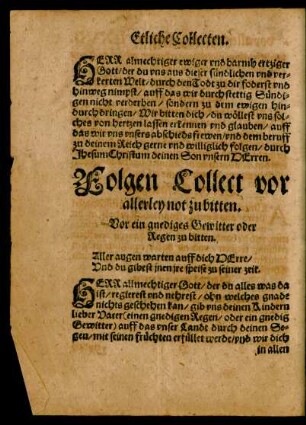 Etliche Collecten.
HERR almechtiger ewiger vnd barmhertziger
Gott/ der du vns aus dieser sündlichen vnd ver-
kerten Welt/ durch den Todt zu dir foderst vnd
hinweg nimpst/ auff das wir durch stettig Sündi-
gen nicht verderben/ sondern zu dem ewigen hin-
durch dringen/ Wir bitten dich/ du wöllest vns sol-
ches von hertzen lassen erkennen vnd glauben/ auff
das wir vns vnsers abschieds frewen/ vnd dem beruff
zu deinem Reich gerne vnd williglich folgen/ durch
Jhesum Christum deinen Son vnsern HErren.
Folgen Collect vor
allerley not zubitten.
Vor ein gnediges Gewitter oder
Regen zu bitten.
Aller augen warten auff dich HErre/
Vnd du gibest jnen jre speise zu seiner zeit.
HERR allmechtiger Gott/ der du alles was da
ist/ regierest vnd nehrest/ ohn welches gnade
nichts geschehen kan/ gib vns deinen Kindern
lieber Vater (einen gnedigen Regen/ oder ein gnedig
Gewitter) auff das vnser Landt durch deinen Se-
gen/ mit seinen früchten erfüllet werde/ vnd wir dich
in allen